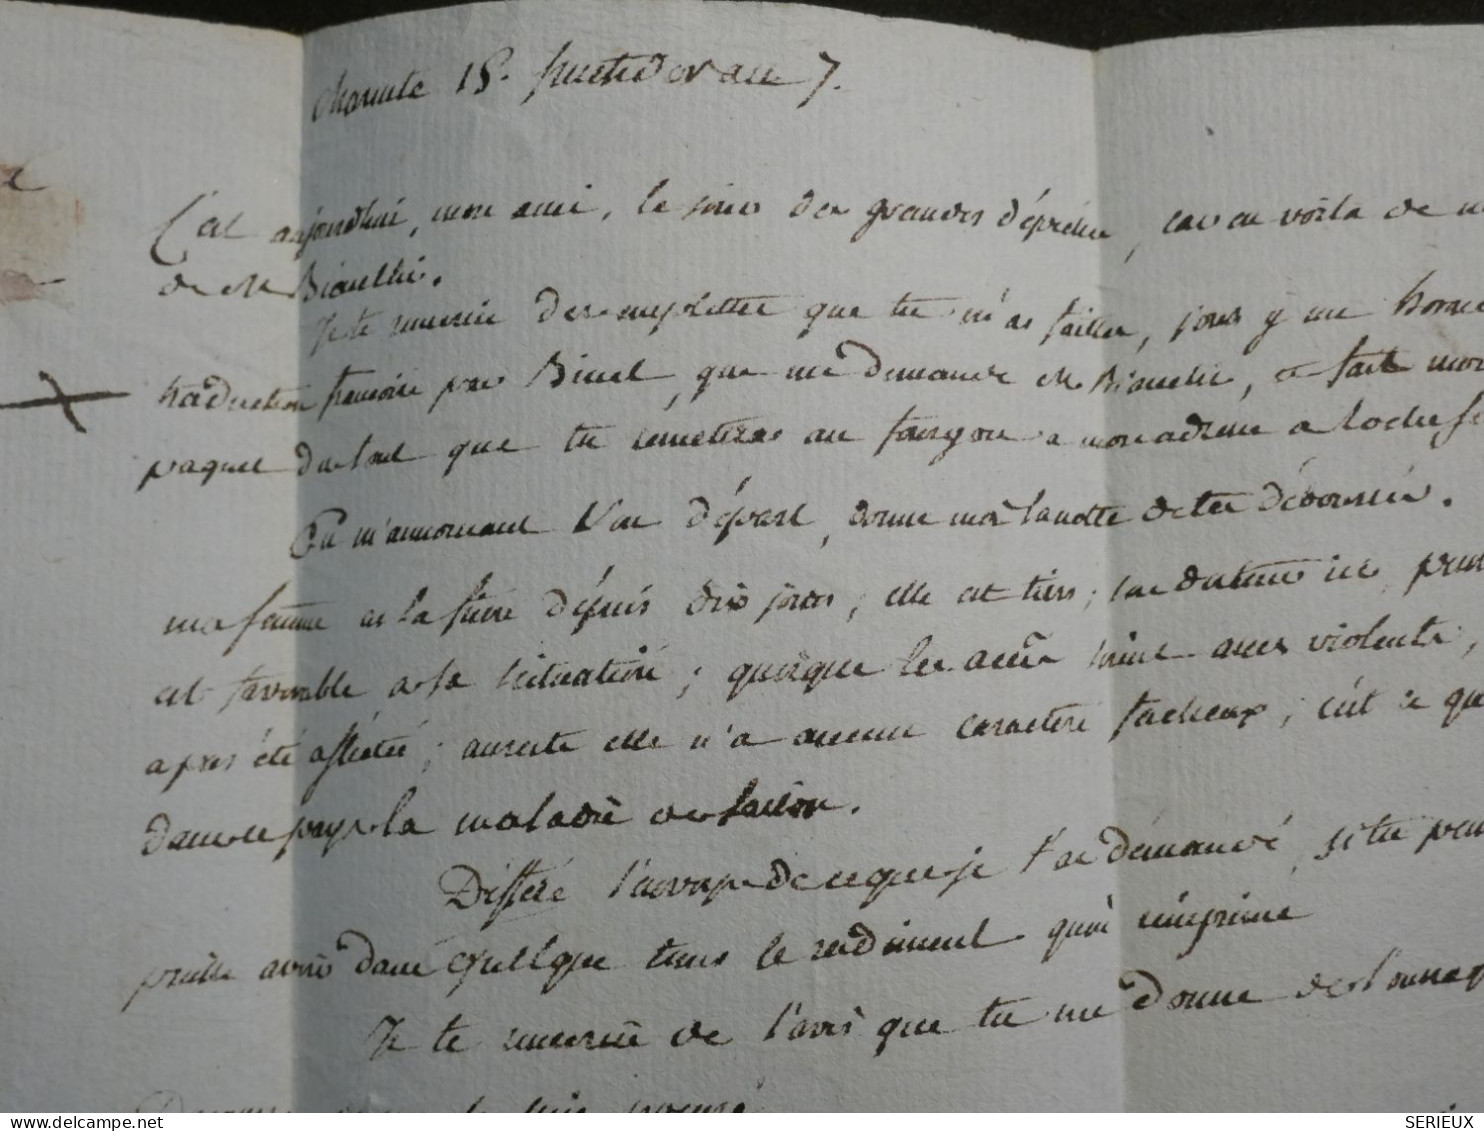 Charente 15. fructidor an 7.
C'est aujourdhui, mon ami, le jour des grandes dépêches, car en voila de
de M Bianchi.
Je te remercie des emplettes que tu m'as faittes, joins y un horace
traduction francoise par Binet, que me demande M Bianchi, et fait mon
paquet du tout que tu remettras au fourgon a mon adresse a rochef
En m'annoncant l'un départ, donne moi la notte de tes déboursés.
ma femme as la fievre dépuis dix jours; elle est tiers;
est favorable a sa situation; quoique les accès soient assez violents,
apres été affectée; au reste elle n'a aucun caractere facheux; c'est ce que
dans ce pays la maladie de saison.
Differe l'envoye de ce que je t'ai démandé, si tu peux
prendre avis dans quelque tems le rudiment qu'on réimprime
Je te remercie de l'avis que tu me donne de l'ouvrage
SERIEUX